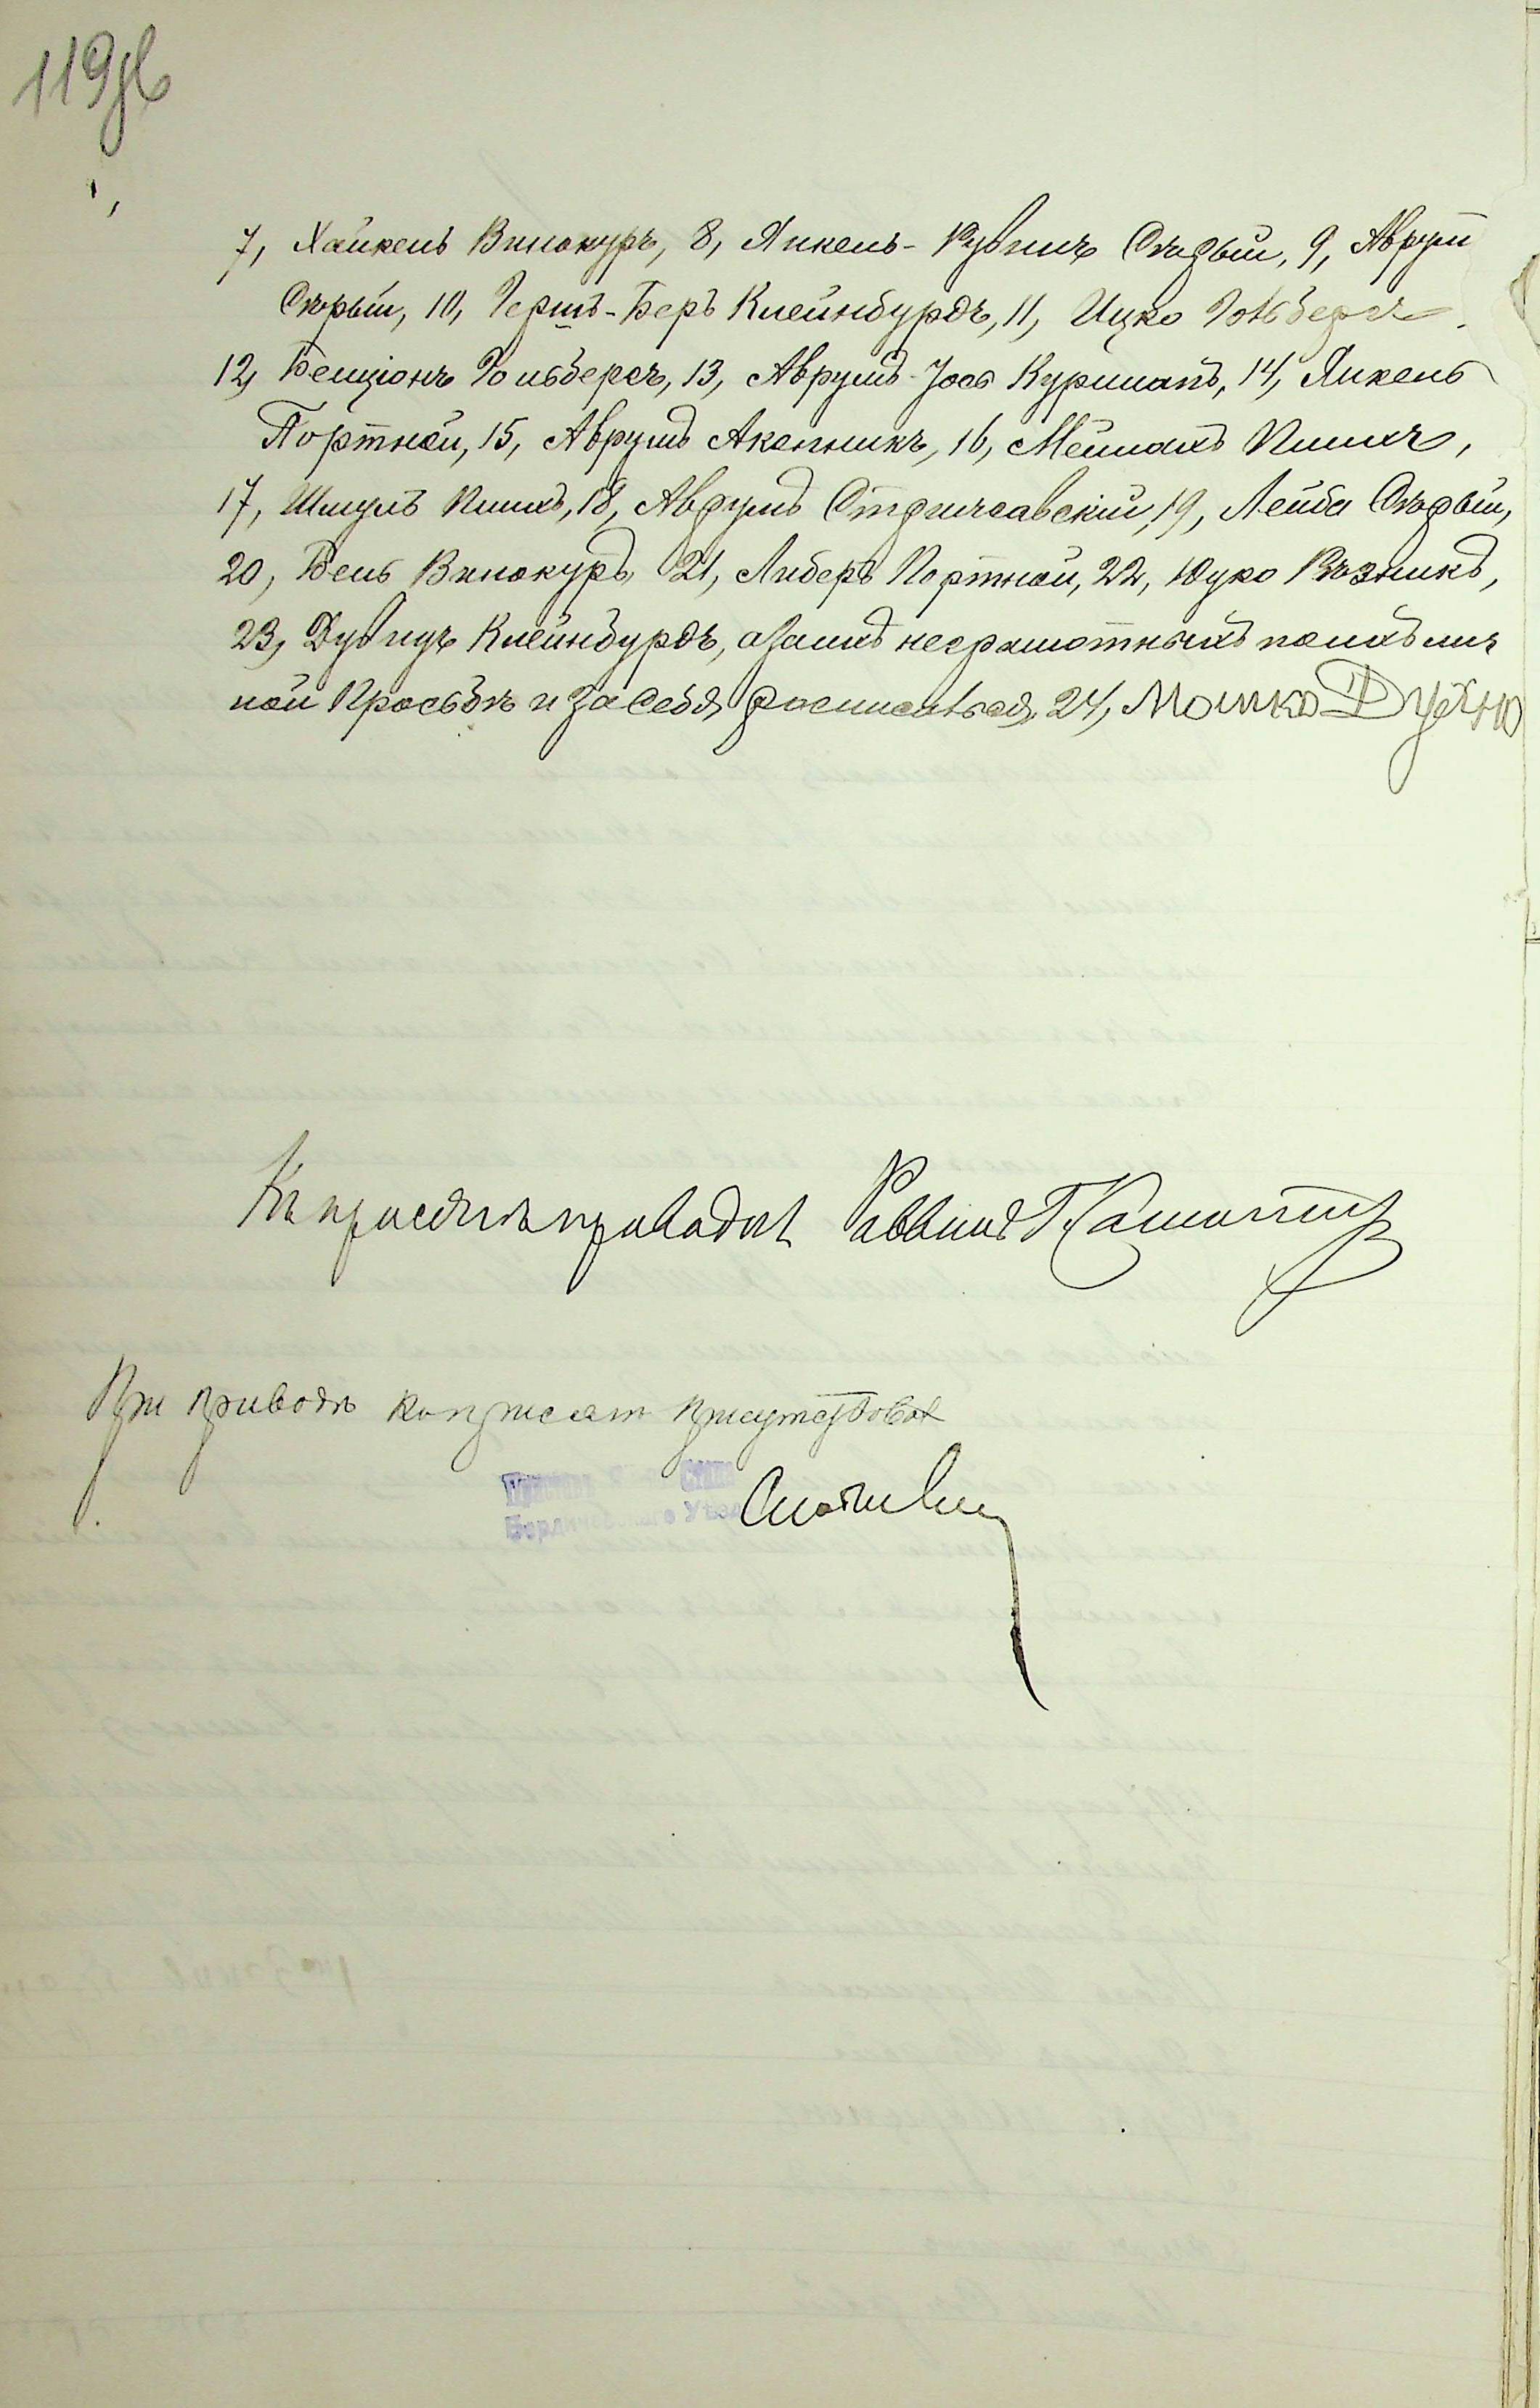 119об
7, Хайкель Винокуръ, 8, Янкель-Рувинъ Сѣрый, 9, Аврум
Сѣрый, 10, Гершъ-Беръ Клейнбурдъ, 11, Ицко Гольдбергъ.
12, Бенціонъ Гольдбергъ, 13, Аврумъ-Іось Курманъ, 14, Янкель
Портной, 15, Аврумъ Акопникъ, 16, Мейлахъ Пилихъ,
17, Шмуль Пилихъ, 18, Аврумъ Стрижавскій, 19, Лейба Сѣрый,
20, Бень Винокуръ 21, Либеръ Портной, 22, Юдко Рѣзникъ,
23, Дувидъ Клейнбурдъ, а за ихъ неграмотныхъ по ихъ лич
ной просьбѣ и за себя росписался, 24, Мошко
Къ присягѣ приводилъ Раввинъ
При приводѣ к присяге присутствовал
Приставъ Стана
Бердичевскаго Уѣзда